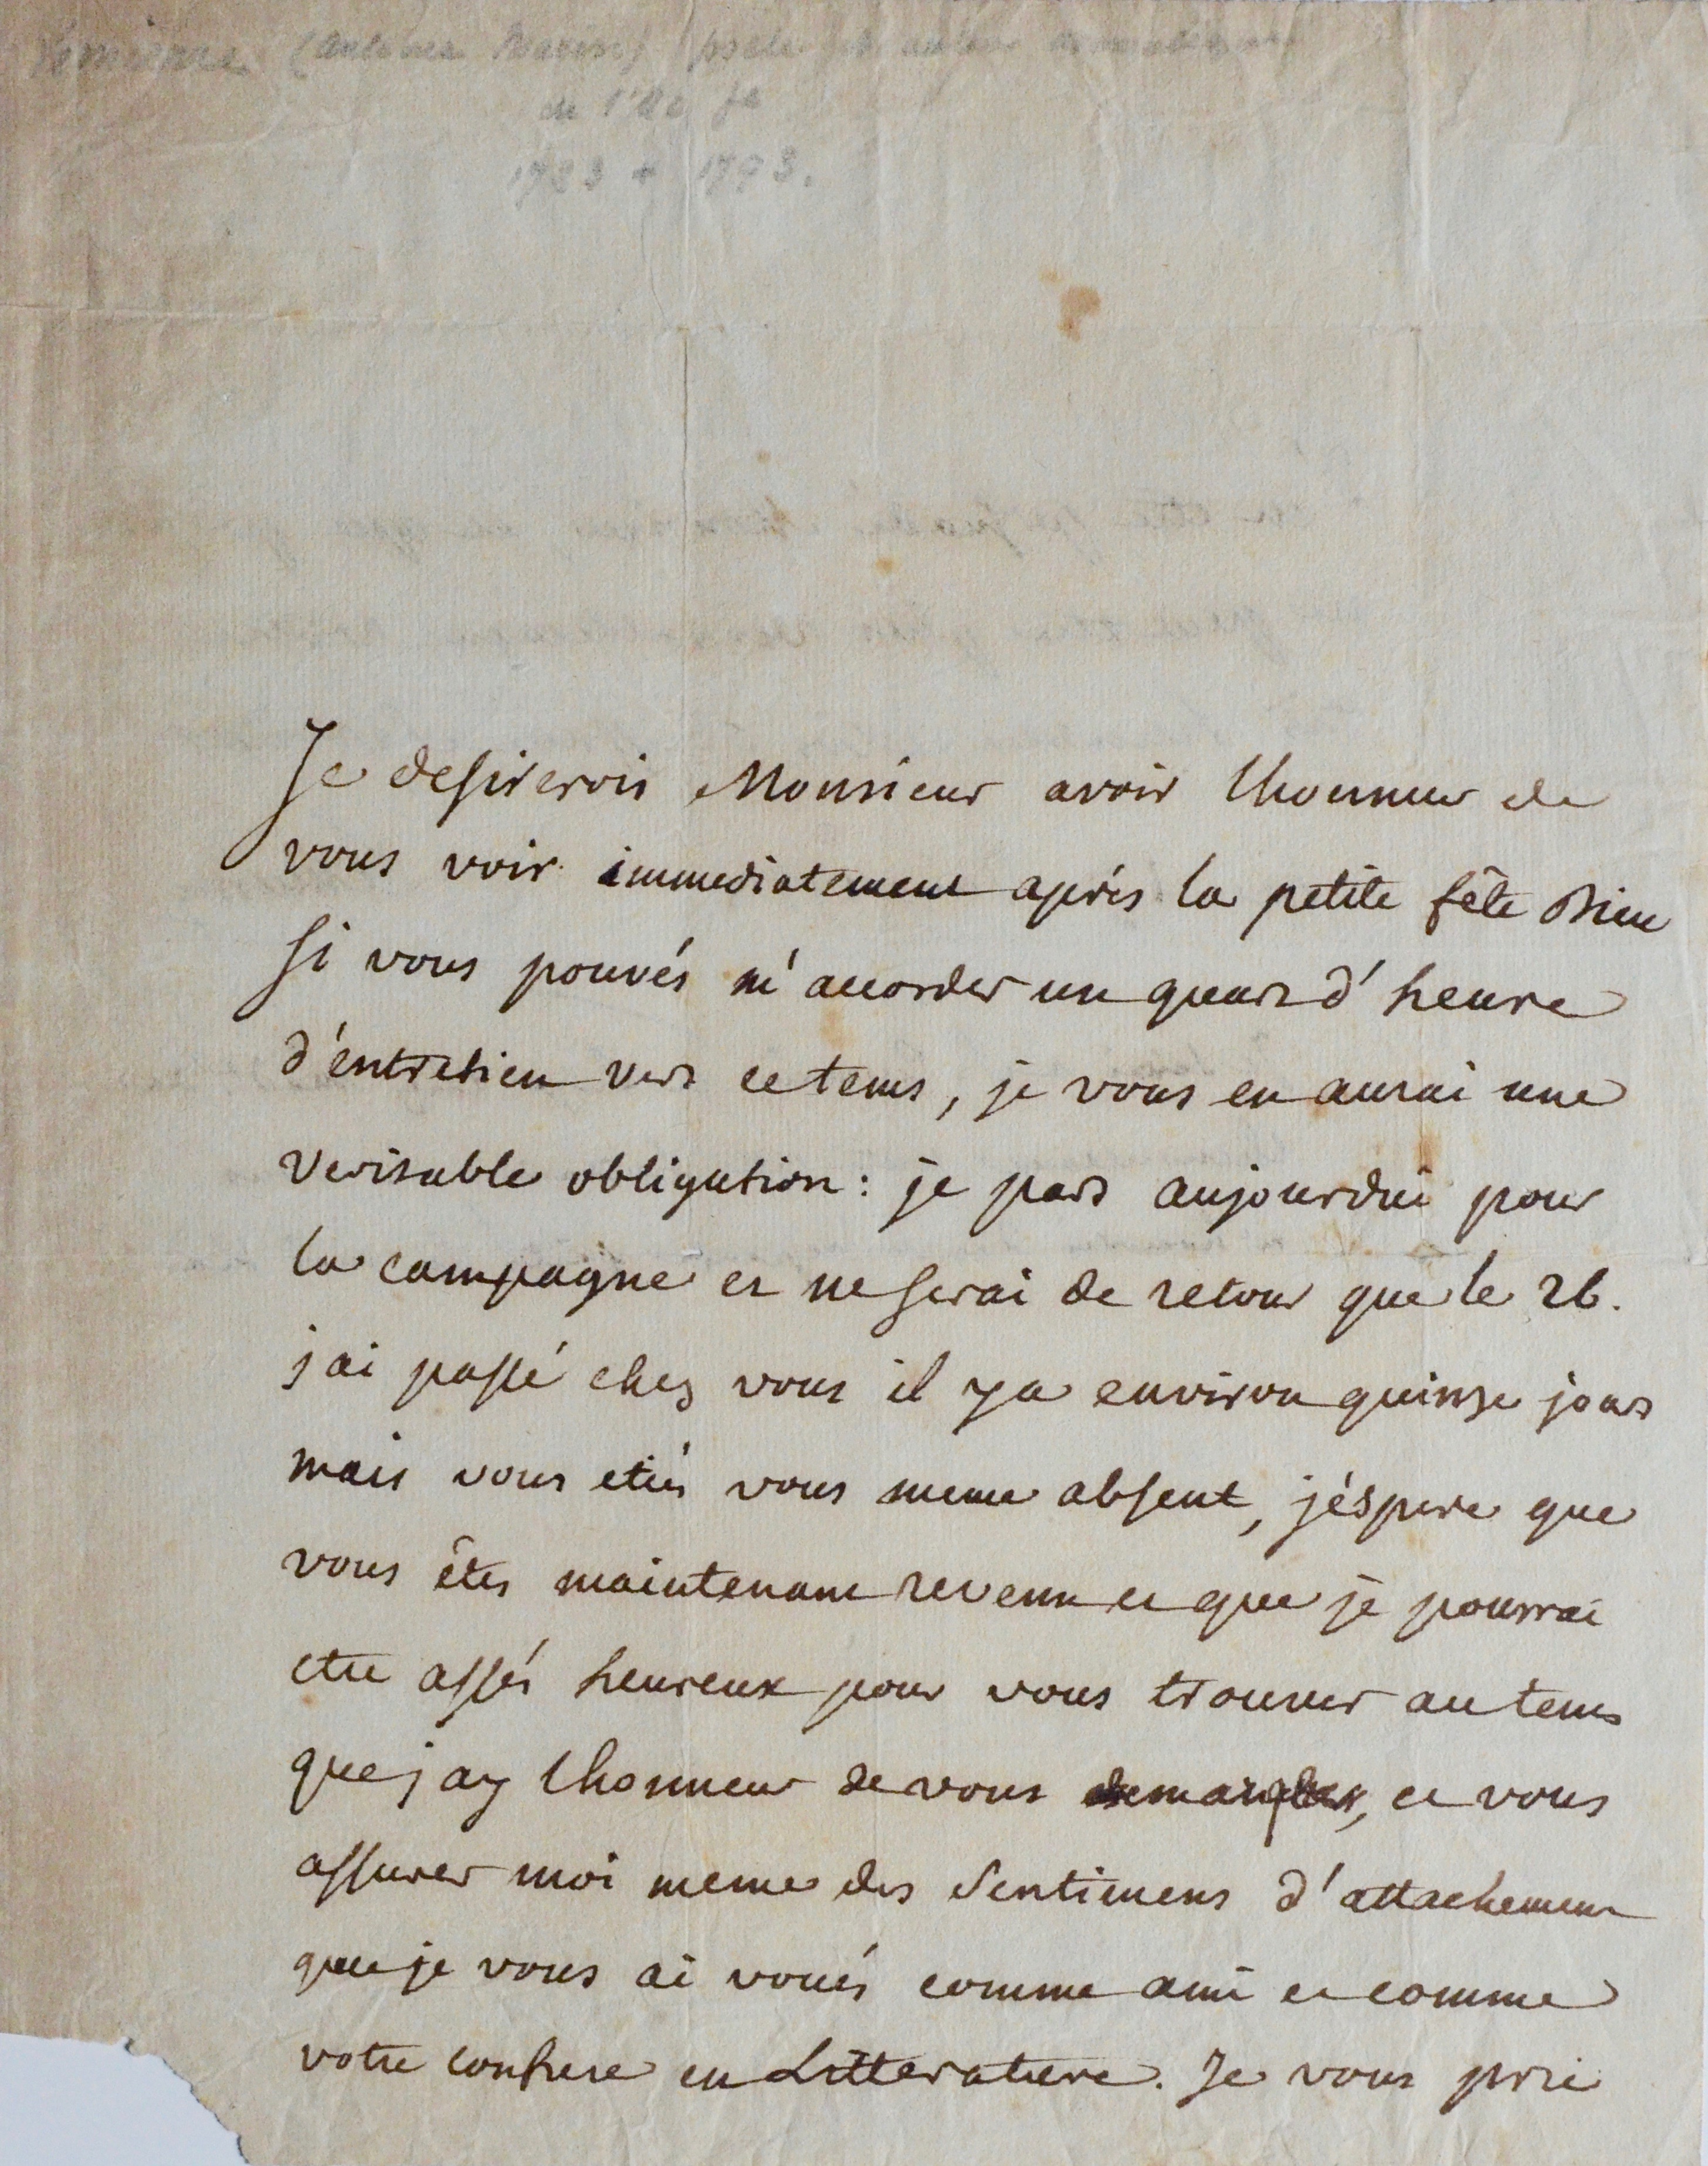 Lemierre (antoine Marin) poete et auteur dramatique
de l'ac fe
1723 + 1793.
Je desirerois Monsieur avoir lhonneur de
vous voir immediatement après la petite fête Dieu
si vous pouvés m'accorder un quart d'heure
d'éntretien vers ce tems, je vous en aurai une
veritable obligation : je pars aujourdui pour
la campagne et ne serai de retour que le 26.
j ai passé chez vous il y a environ quinze jours
mais vous etiés vous meme absent, j'éspere que
vous êtes maintenant revenu et que je pourrai
etre assés heureux pour vous trouver au tems
que j ay lhonneur de vous demander, et vous
assurer moi meme des sentimens d'attachement
que je vous ai voués comme ami et comme
votre confrere en Litterature. Je vous prie